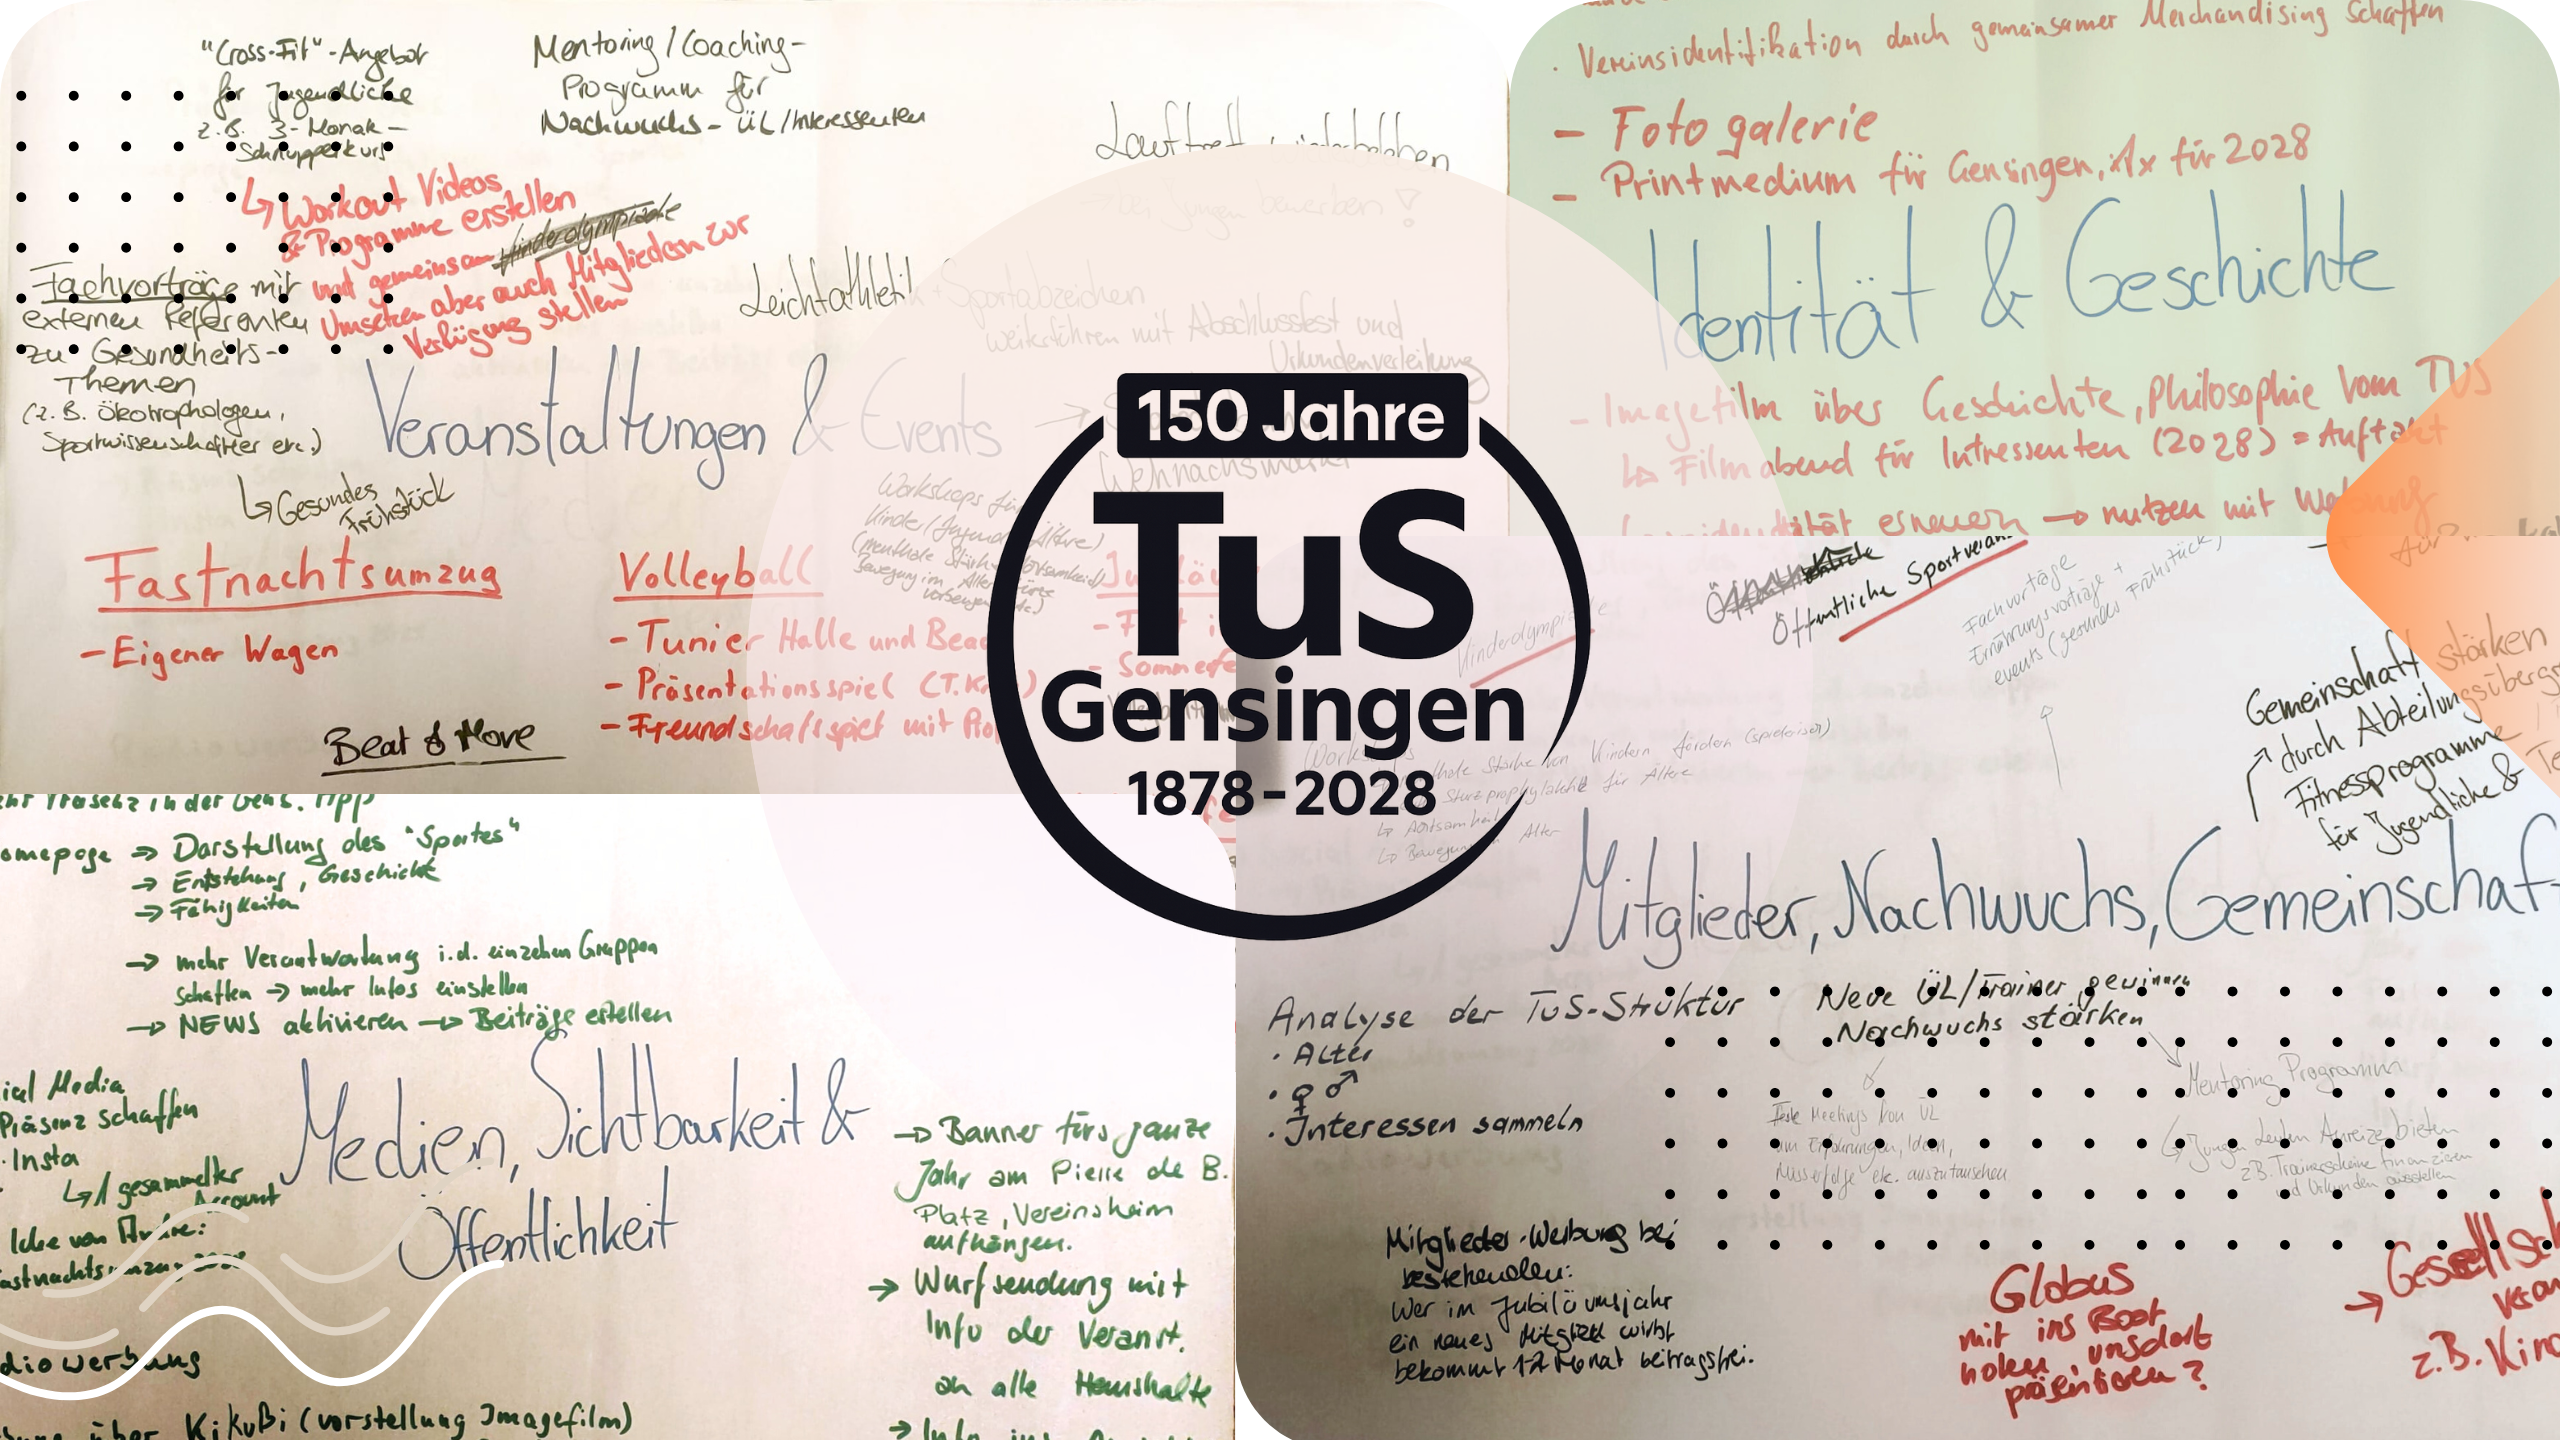 "Cross-Fit"-Angebot
für Jugendliche
z.B. 3-Monat-
Schnupperkurs
↳ Workout Videos
& Programme erstellen
und gemeinsam Kinderolympiade
Umsetzen aber auch Mitgliedern zur
Verfügung stellen
Mentoring/Coaching-
Programm für
Nachwuchs-ÜL/Interessenten
Lauftreff wiederbeleben
bei Jungen bewerben!
Fachvorträge mit
externen Referenten
zu Gesundheits-
Themen
(z.B. Ökotrophologen,
Sportwissenschaftler etc.)
↳ Gesundes
Frühstück
Leichtathletik + Sportabzeichen
weiterführen mit Abschlussfest und
Urkundenverleihung
Veranstaltungen & Events
Weihnachtsmarkt
Workshops für
Kinder/Jugend Ältere)
(menthale Stärke
Bewegung im Alter
vorbeugen
Fastnachtsumzug
- Eigener Wagen
Volleyball
- Tunier Halle und
- Präsentationsspiel
- Freundschaftsspiel mit
Beat & Move
- Sommerfe
Vereinsidentifikation durch gemeinsamer Merchandising schaffen
- Fotogalerie
- Printmedium für Gensingen, 1x für 2028
Identität & Geschichte
- Imagefilm über Geschichte, Philosophie vom TUS
↳ Filmabend für Intressenten (2028) = Auftakt
erneuern → nutzen mit
150 Jahre
TuS
Gensingen
1878-2028
mehr Präsenz in der Gens. Tipp
omepage → Darstellung des "Sportes"
→ Entstehung, Geschichte
→ Fähigkeiten
→ mehr Verantwortung i.d. einzelnen Gruppen
schaffen → mehr Infos einstellen
→ NEWS aktivieren → Beiträge erstellen
ial Media
Präsenz schaffen
· Insta
↳ 1 gesammelter
Account
Idee von Andre:
astnachtsumzug
Medien, Sichtbarkeit &
Öffentlichkeit
→ Banner fürs ganze
Jahr am Pierre de B.
Platz, Vereinsheim
aufhängen.
→ Wurfsendung mit
Info der Veranst.
an alle Haushalte
→ Info ins
diowerbung
über KiKuBi (vorstellung Imagefilm)
Kinderolympiade
Öffentliche Sportveran
Fachvorträge
Ernährungsvorträge +
events (gesundes Frühstück)
Gemeinschaft stärken
durch Abteilungsübergr
Fitnessprogramme
für Jugendliche &
menthale Stärke von Kindern fördern (spielerisch)
Sturzprophylaxe für Ältere
↳ Achtsamkeit
↳ Bewegung Alter
Mitglieder, Nachwuchs, Gemeinschaf
Analyse der TuS-Struktur
· Alter
· ♀ ♂
· Interessen sammeln
Neue ÜL/Trainer gewinnen
Nachwuchs stärken
Feste Meetings von ÜL
um Erfahrungen, Ideen,
Misserfolge etc. auszutauschen
Mentoring Programm
↳ Jungen Leuten Anreize bieten
z.B. Trainerscheine finanzieren
und Urkunden ausstellen
Mitglieder-Werbung bei
bestehenden:
Wer im Jubiläumsjahr
ein neues Mitglied wirbt
bekommt 12 Monat beitragsfrei.
Globus
mit ins Boot
holen, uns dort
präsentieren?
→ Gesellsch
veran
z.B. Kino